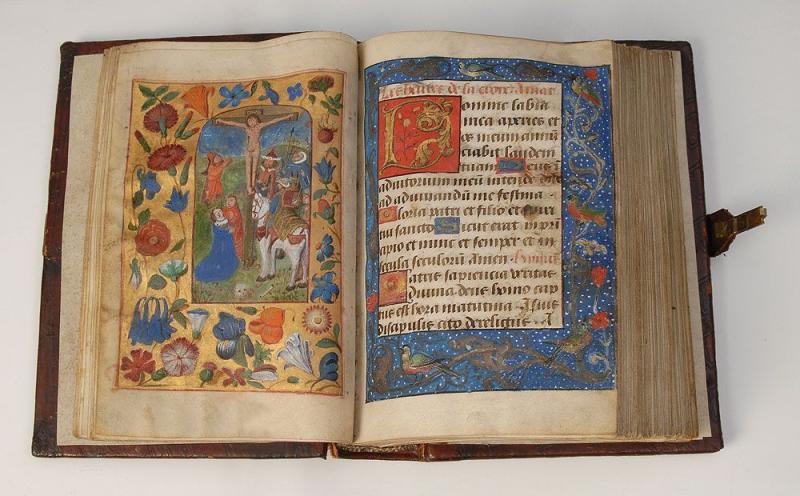 Les heures de la croix
Domine labia
mea aperies et
os meum annū
ciabit laudem
tuam Deus
adiutorium meū intende
ad adiuuandū me festina
Gloria patri et filio et
tui sancto Sicut erat in prin
cipio et nunc et semper et in
secula seculorum Amen
Patris sapiencia veritas
diuina deus homo cap
tus est hora matutina A suis
discipulis cito derelictus A